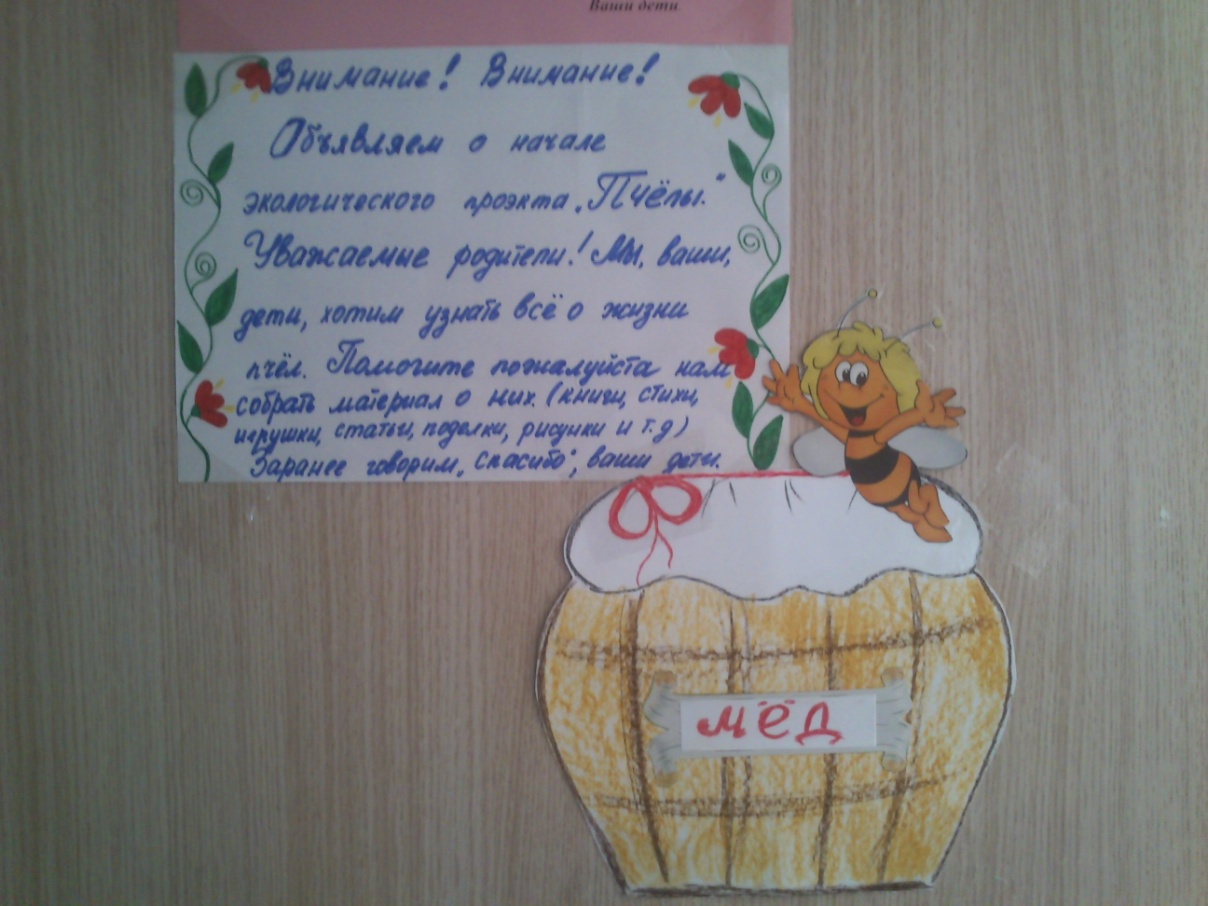 Ваши дети
Внимание! Внимание!
Объявляем о начале
экологического проэкта „Пчёлы."
Уважаемые родители! Мы, ваши,
дети, хотим узнать всё о жизни
пчёл. Помогите пожалуйста нам
собрать материал о них. (книги, стихи,
игрушки, статьи, поделки, рисунки и т.д)
Заранее говорим „спасибо", ваши дети.
мёд